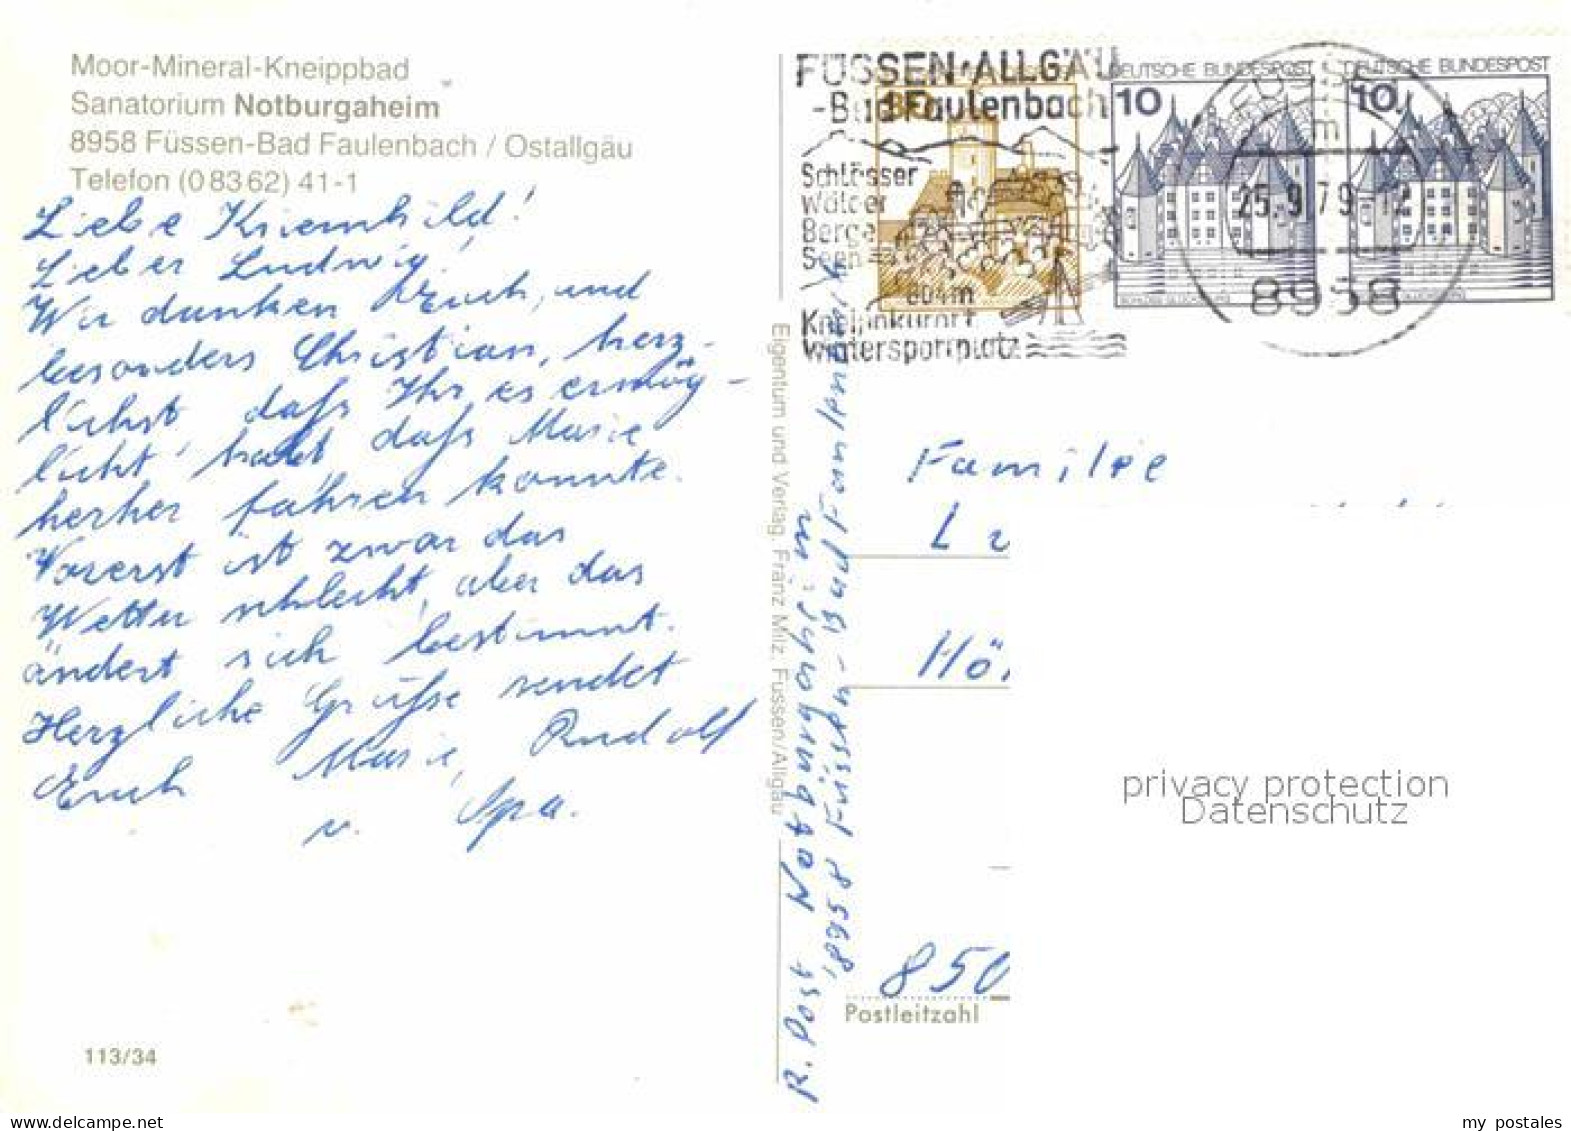 Moor-Mineral-Kneippbad
Sanatorium Notburgaheim
8958 Füssen-Bad Faulenbach / Ostallgäu
Telefon (0 83 62) 41-1
Liebe Kriemhild!
Lieber Ludwig!
Wir danken Euch, und
besonders Christian, herz-
lichst daß Ihr es ermög-
licht habt daß Marie
herher fahren konnte.
Vorerst ist zwar das
Wetter schlecht, aber das
ändert sich bestimmt.
Herzliche Grüße sendet
Euch Marie, Rudolf
u. Opa.
113/34
Eigentum und Verlag, Franz Milz, Füssen/Allgäu
R. Post Notburgaheim
8958 Füssen-Bad Faulenbach
FÜSSEN·ALLGÄU
-Bad Faulenbach
Schlösser
Wälder
Berge
Seen
804m
Kneippkurort
Wintersportplatz
DEUTSCHE BUNDESPOST
10
DEUTSCHE BUNDESPOST
10
25.9.79-12
8958
Familie
Hö
850
Postleitzahl
privacy protection
Datenschutz
my postales